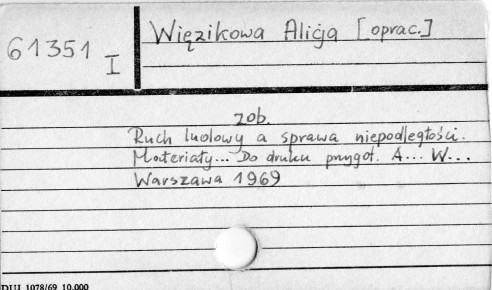 61351 I
Więzikowa Alicja [oprac.]
zob.
Ruch ludowy a sprawa niepodległości.
Materiały... Do druku przygot. A... W...
Warszawa 1969
DUJ. 1078/69 10.000